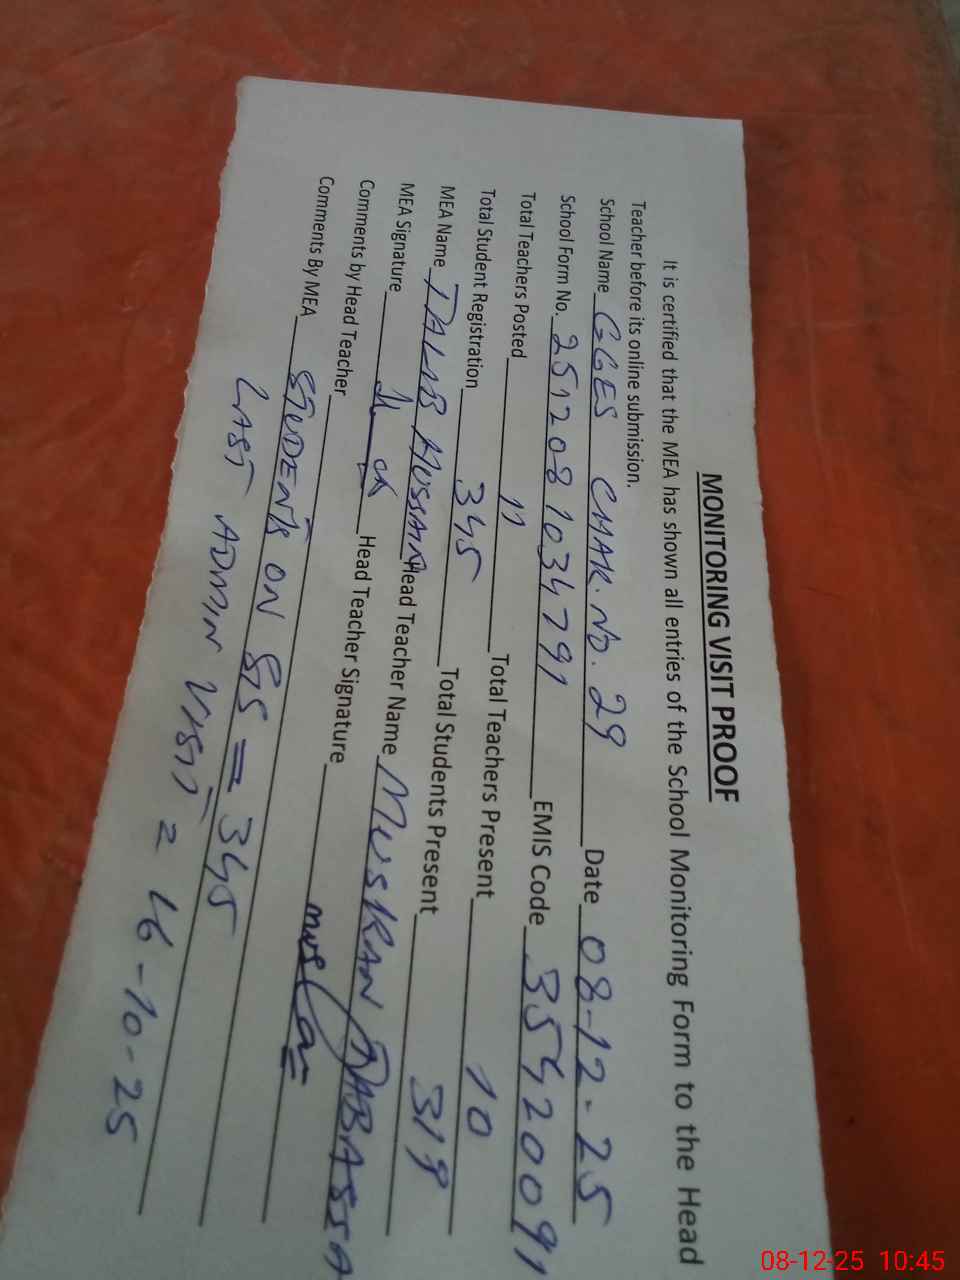 MONITORING VISIT PROOF
It is certified that the MEA has shown all entries of the School Monitoring Form to the Head
Teacher before its online submission.
School Name GGES CHAK. NO. 29 Date 08-12-25
School Form No. 251208 1034791 EMIS Code 35420091
Total Teachers Posted 11 Total Teachers Present 10
Total Student Registration 345 Total Students Present 319
MEA Name TALIB HUSSAIN Head Teacher Name MUSKAN TABASSA
MEA Signature Head Teacher Signature
Comments by Head Teacher
Comments By MEA STUDENTS ON SIS = 345
LAST ADMIN VISIT = 16-10-25
08-12-25 10:45